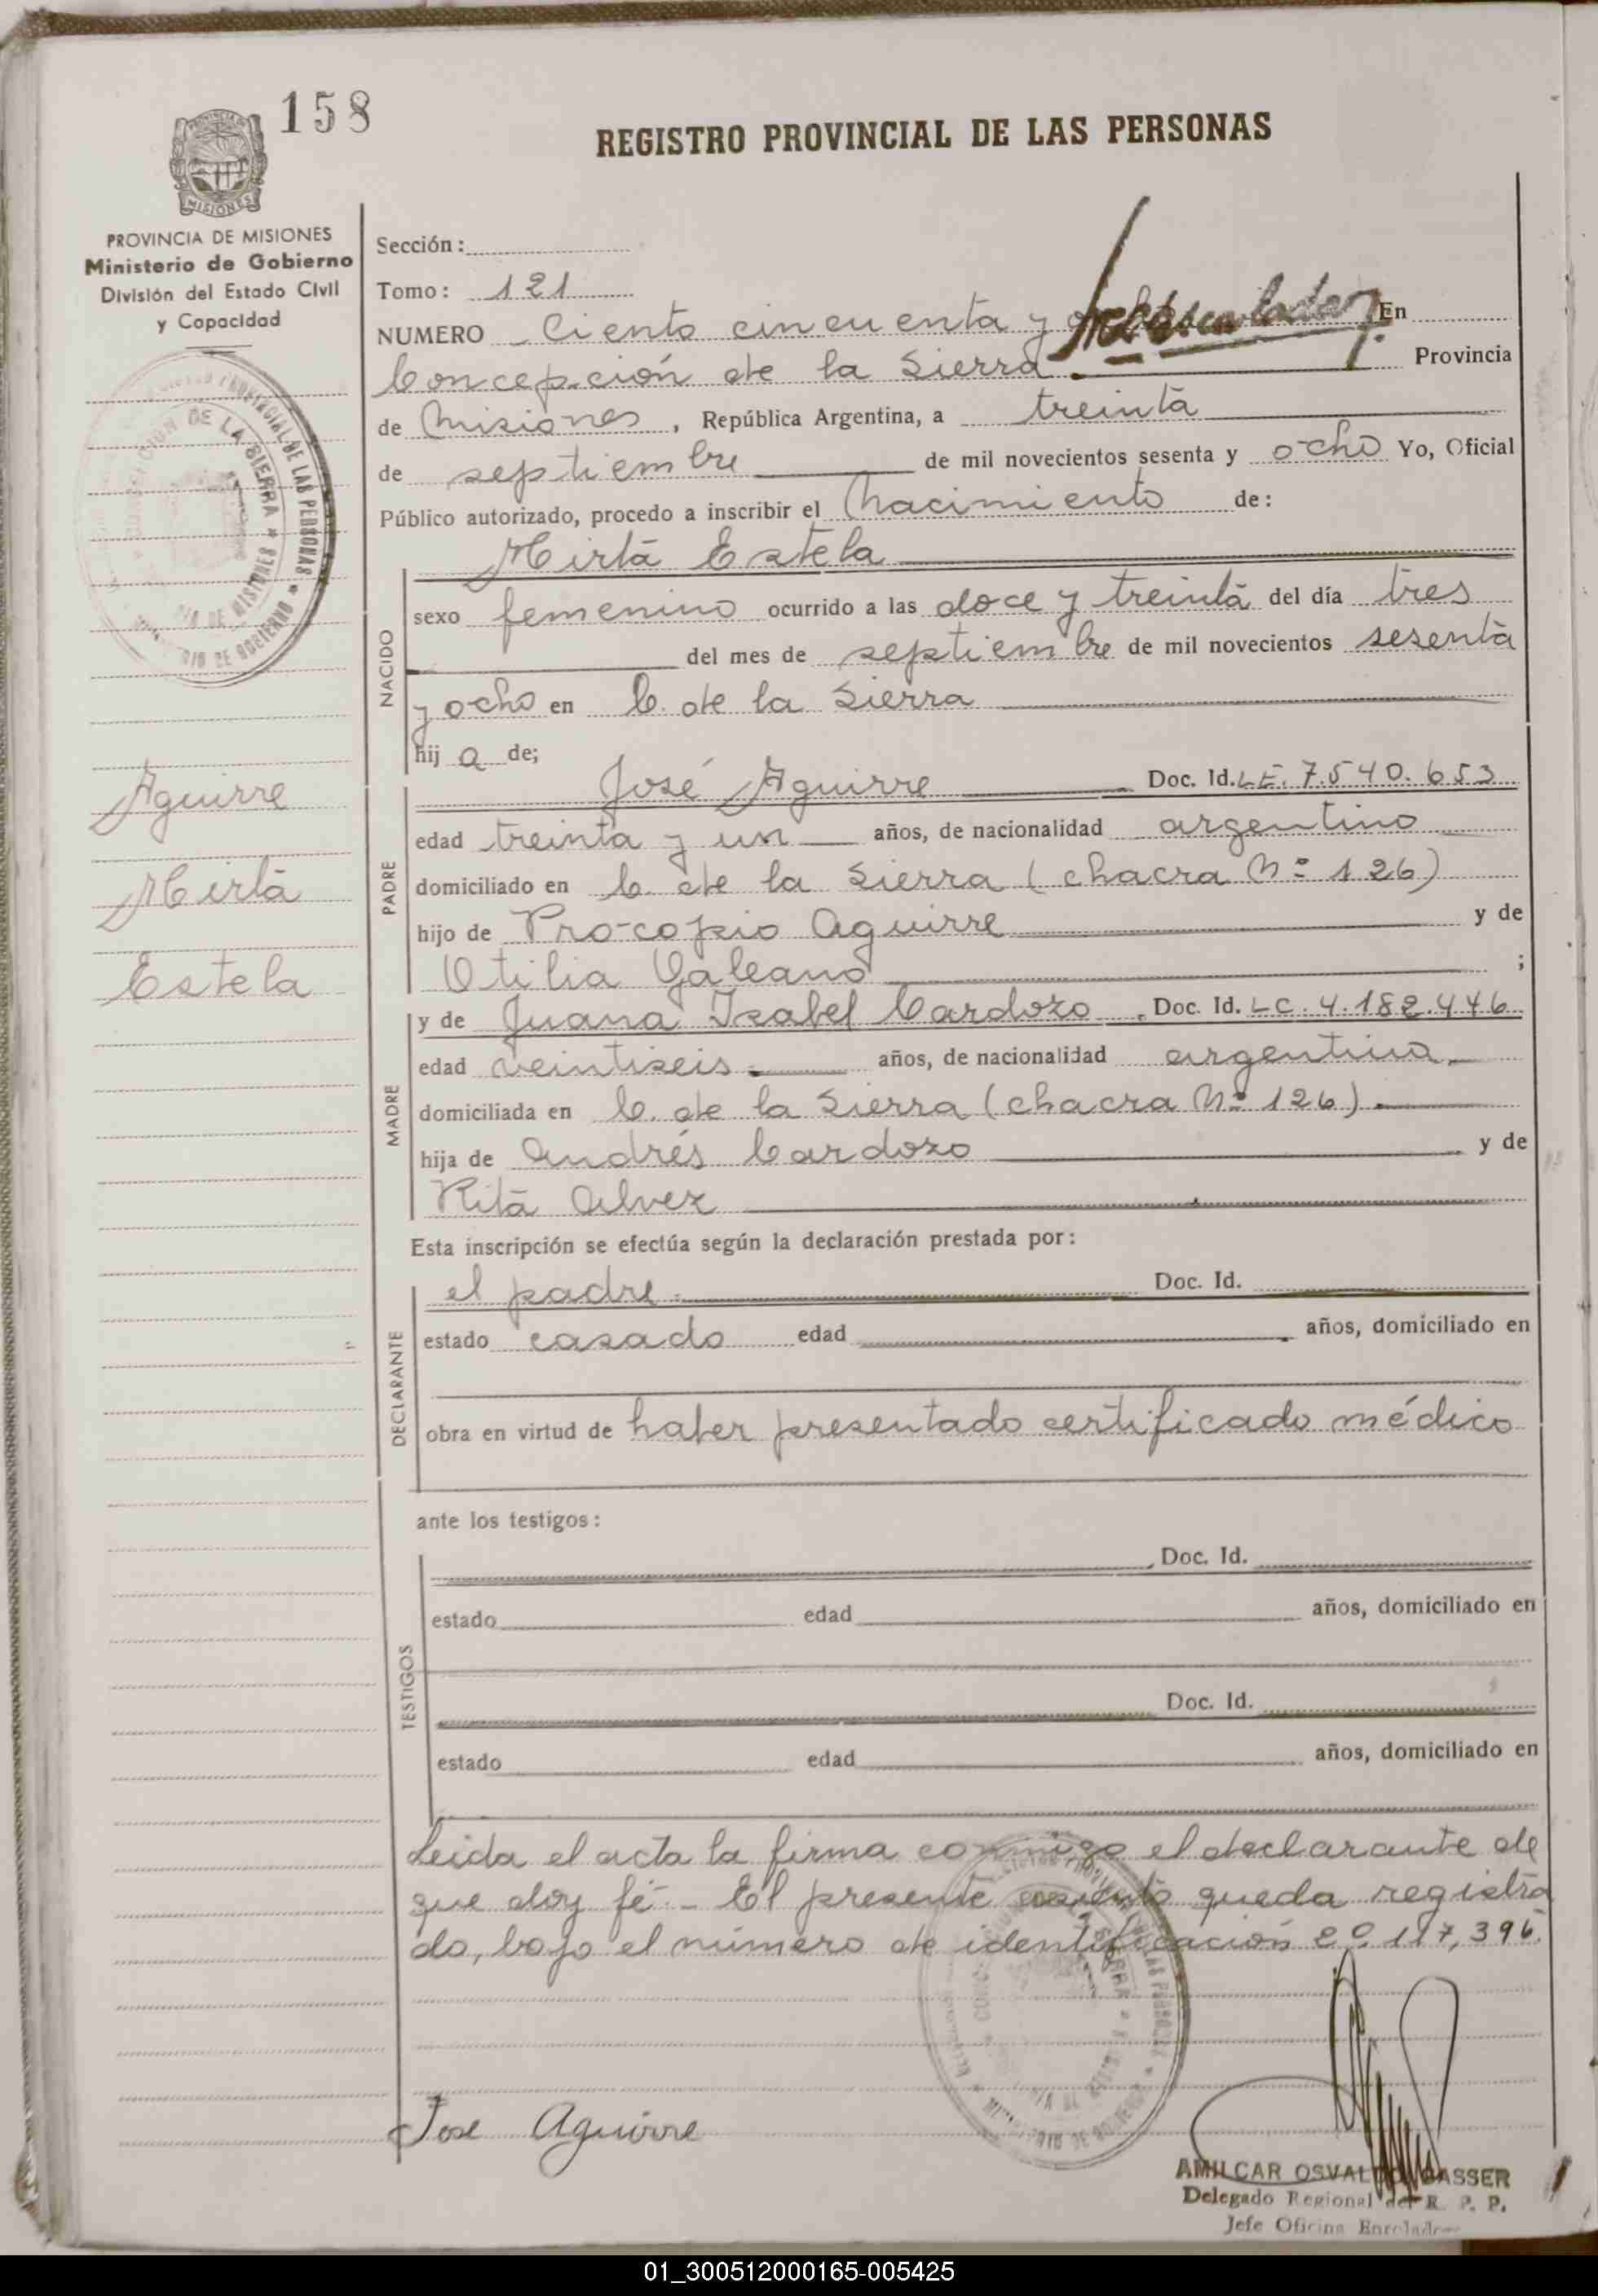 158
REGISTRO PROVINCIAL DE LAS PERSONAS
PROVINCIA DE MISIONES
Ministerio de Gobierno
División del Estado Civil
y Capacidad
Sección:
Tomo: 121
NUMERO Ciento cincuenta y En
Concepción de la Sierra Provincia
de Misiones, República Argentina, a treinta
de septiembre de mil novecientos sesenta y ocho Yo, Oficial
Público autorizado, procedo a inscribir el Nacimiento de:
Mirta Estela
NACIDO
sexo femenino ocurrido a las doce y treinta del día tres
del mes de septiembre de mil novecientos sesenta
y ocho en C. de la Sierra
hija de;
Aguirre
Mirta
Estela
PADRE
José Aguirre Doc. Id. LE. 7.540.653
edad treinta y un años, de nacionalidad argentino
domiciliado en C. de la Sierra (chacra Nº 126)
hijo de Procopio Aguirre y de
Otilia Galeano ;
MADRE
y de Juana Isabel Cardozo. Doc. Id. LC. 4.182.446
edad veintiseis años, de nacionalidad argentina.
domiciliada en C. de la Sierra (chacra Nº 126).
hija de Andrés Cardozo y de
Rita Alvez
Esta inscripción se efectúa según la declaración prestada por:
DECLARANTE
el padre. Doc. Id.
estado casado edad años, domiciliado en
obra en virtud de haber presentado certificado médico
ante los testigos:
TESTIGOS
Doc. Id.
estado edad años, domiciliado en
Doc. Id.
estado edad años, domiciliado en
Leida el acta la firma conmigo el declarante de
que doy fé.- El presente asiento queda registra
do, bajo el número de identificación 20.117,396.
Jose Aguirre
AMILCAR OSVALDO GASSER
Delegado Regional del R. P. P.
Jefe Oficina Enrolador
01_300512000165-005425